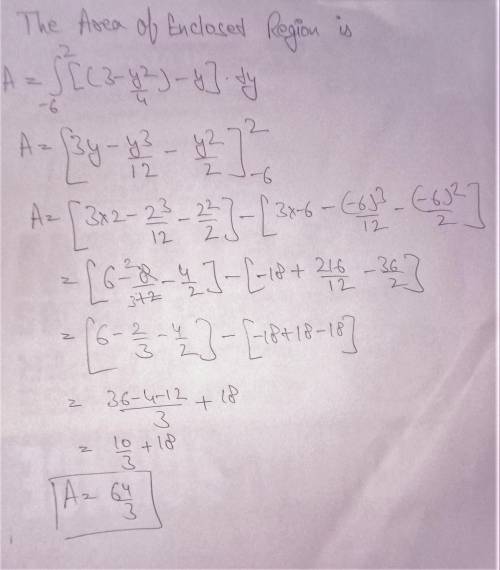 The Area of Enclosed Region is
A = ∫_{-6}^{2} [(3 - y²/4) - y] · dy
A = [3y - y³/12 - y²/2]_{-6}^{2}
A = [3×2 - 2³/12 - 2²/2] - [3×-6 - (-6)³/12 - (-6)²/2]
= [6 - 8/12 - 4/2] - [-18 + 216/12 - 36/2]
= [6 - 2/3 - 4/2] - [-18 + 18 - 18]
= (36 - 4 - 12)/3 + 18
= 10/3 + 18
A = 64/3